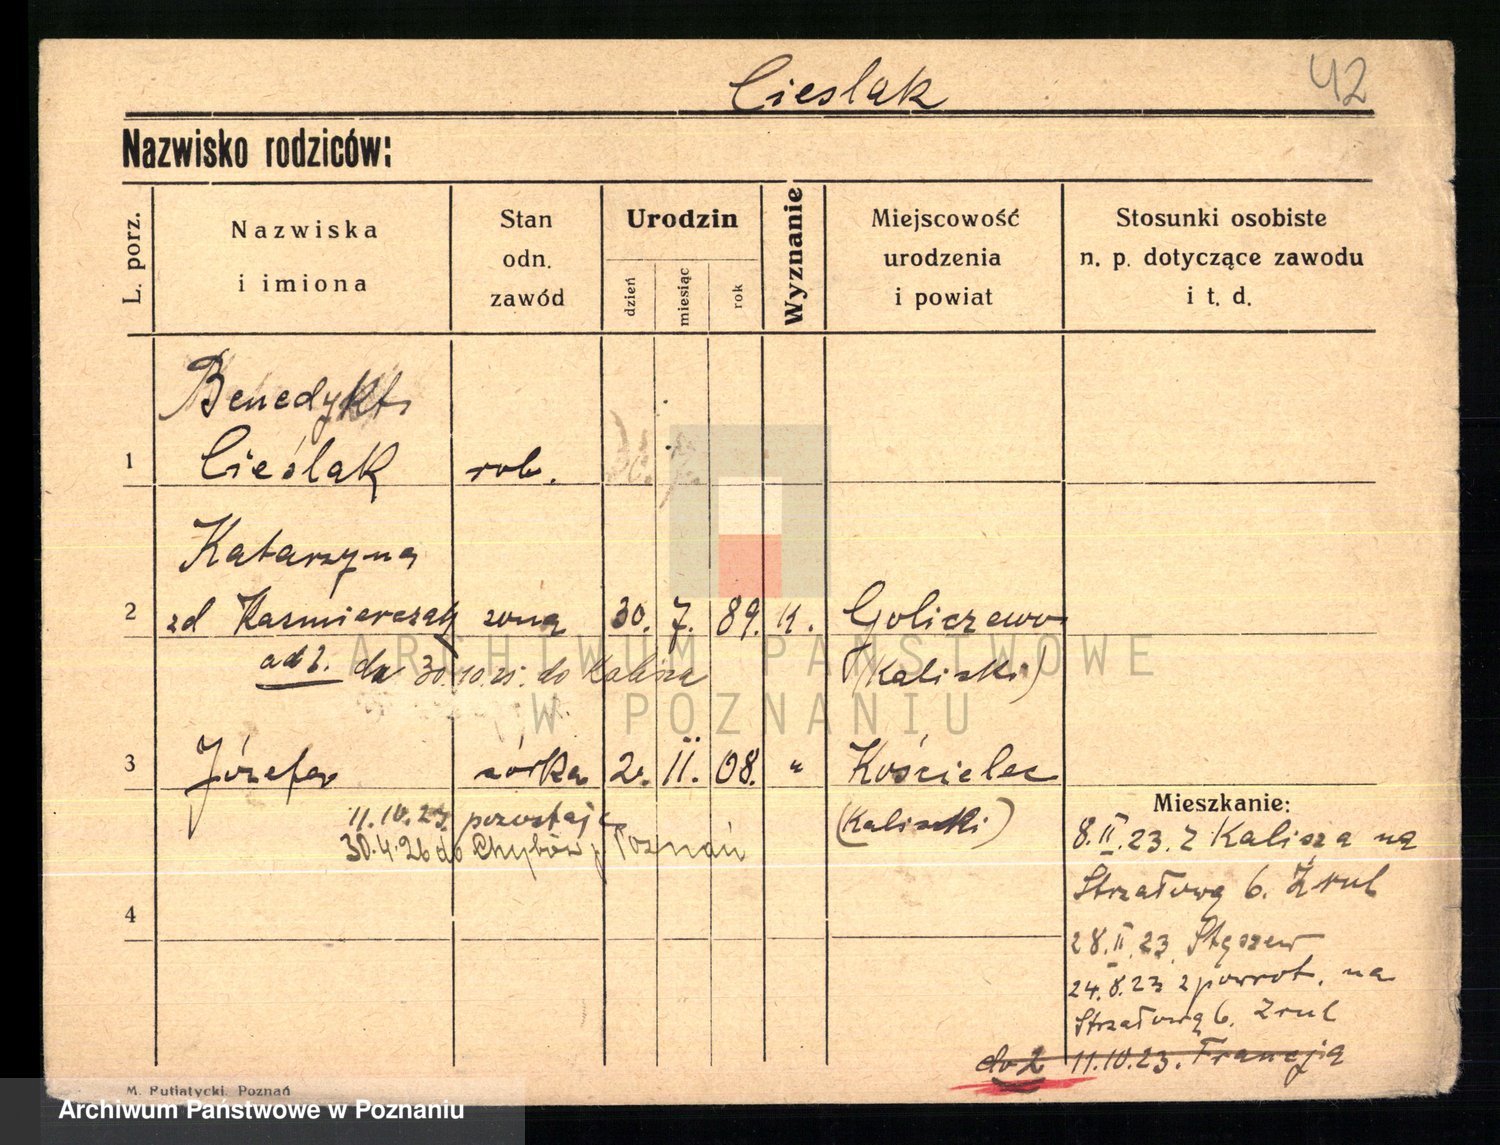 Cieslak
42
Nazwisko rodziców:
L. porz.
Nazwiska
i imiona
Stan
odn.
zawód
Urodzin
dzień
miesiąc
rok
Wyznanie
Miejscowość
urodzenia
i powiat
Stosunki osobiste
n. p. dotyczące zawodu
i t. d.
Benedykt
1 Cieślak rob.
Katarzyna
2 zd Kasmierczak żona 30. 7. 89. K. Goliczewo
ad 2. 30.10.25. do Kalisza (Kaliski)
3 Józefa córka 2. II. 08. " Kościelec
11.10.23 pozostaje (Kaliski)
30.4.26 do Chybów p. Poznań
Mieszkanie:
8.II.23. z Kalisza na
Strzałową 6.
4
28.II.23. Stęszew
24.8.23 z powrot. na
Strzałową 6.
do 2 11.10.23. Francja
M. Putiatycki. Poznań
ARCHIWUM PAŃSTWOWE
W POZNANIU
Archiwum Państwowe w Poznaniu